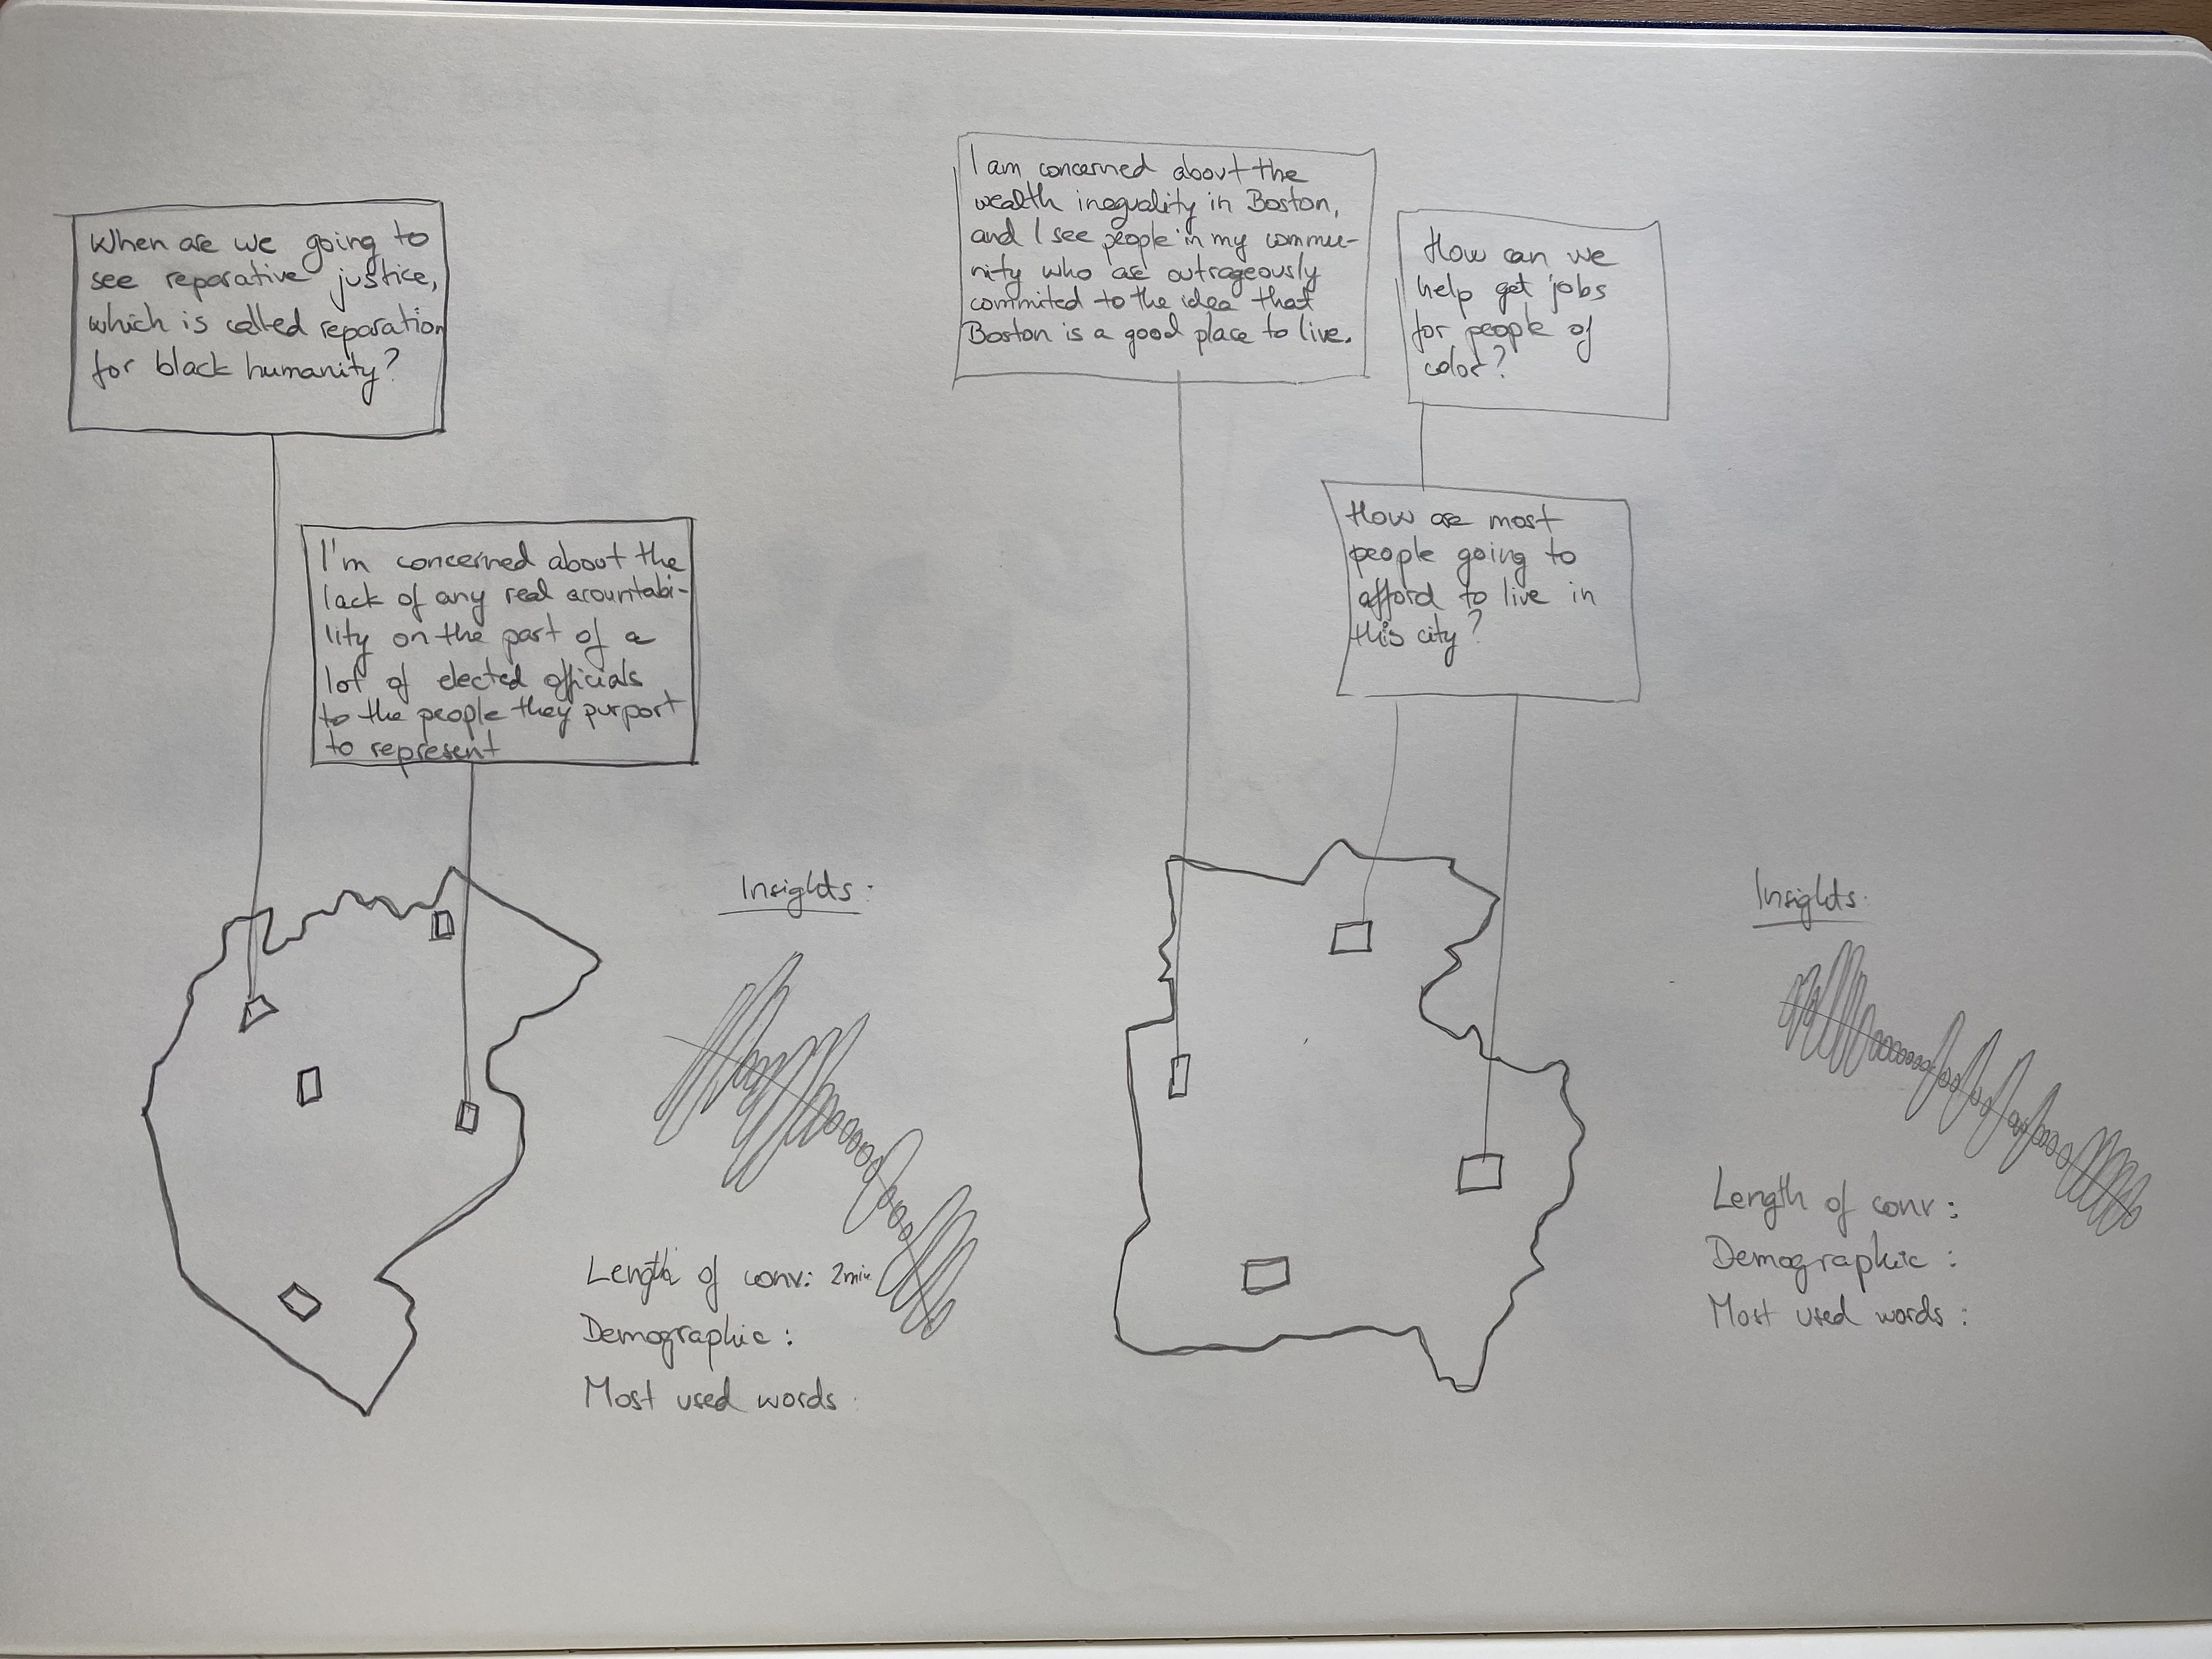 When are we going to
see reparative justice,
which is called reparation
for black humanity?
I'm concerned about the
lack of any real acountabi-
lity on the part of a
lot of elected officials
to the people they purport
to represent
Insights:
Length of conv: 2min
Demographic:
Most used words:
I am concerned about the
wealth inequality in Boston,
and I see people in my commu-
nity who are outrageously
commited to the idea that
Boston is a good place to live.
How can we
help get jobs
for people of
color?
How are most
people going to
afford to live in
this city?
Insights:
Length of conv:
Demographic:
Most used words: